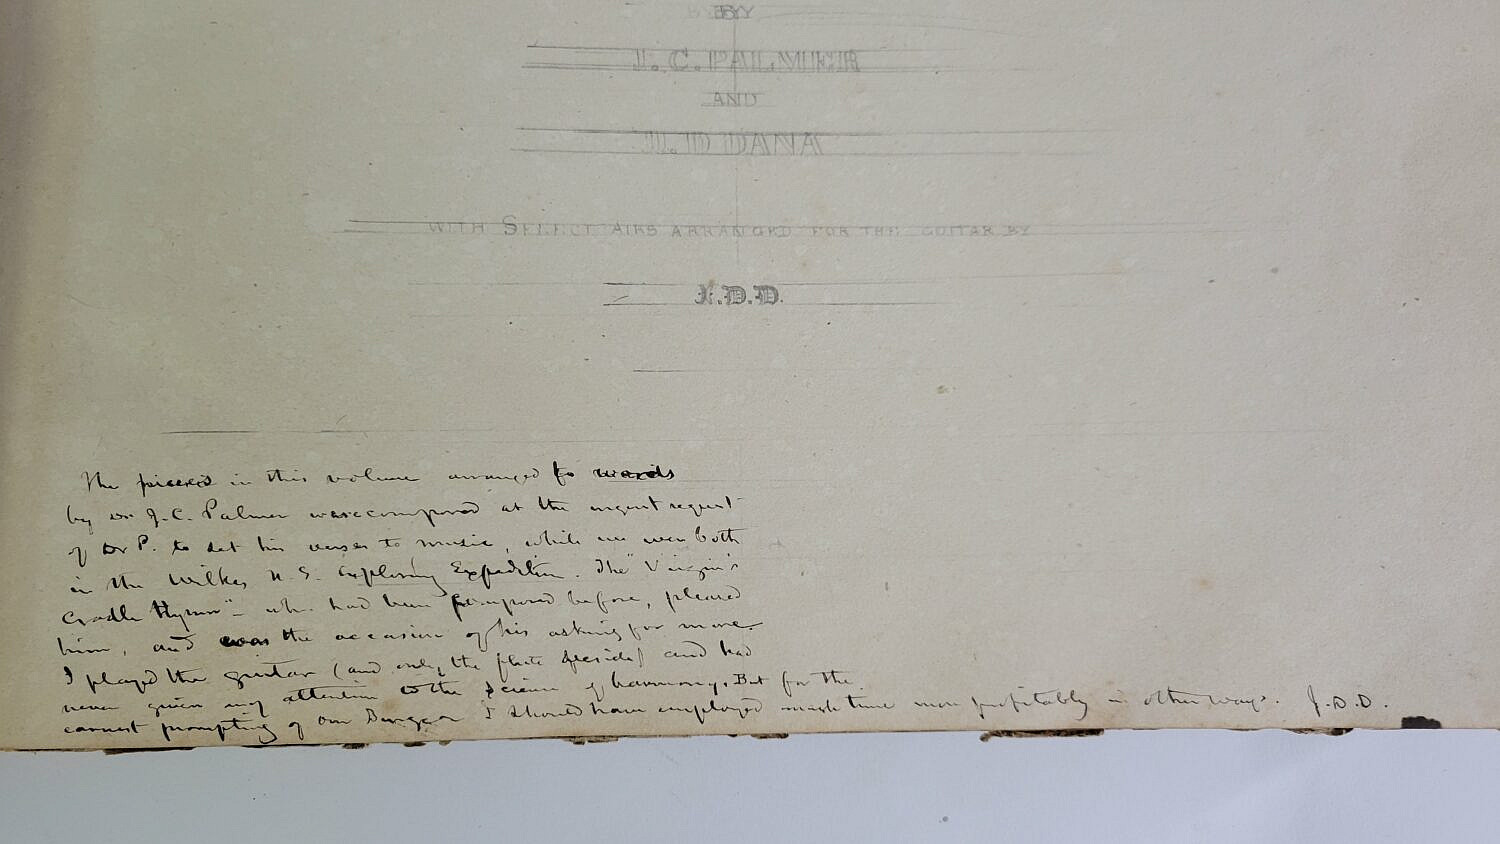 BY
J. C. PALMER
AND
J. D DANA
WITH SELECT AIRS ARRANGED FOR THE GUITAR BY
J.D.D.
The pieces in this volume arranged to words
by Dr J. C. Palmer were composed at the urgent request
of Dr P. to set his verses to music, while we were both
in the Wilkes U. S. Exploring Expedition. The "Virgin's
Cradle Hymn" – wh. had been composed before, pleased
him, and was the occasion of his asking for more.
I played the guitar (and only the flute beside) and had
never given any attention to the science of harmony. But for the
earnest prompting of our Surgeon I should have employed much time more profitably in other ways. J.D.D.